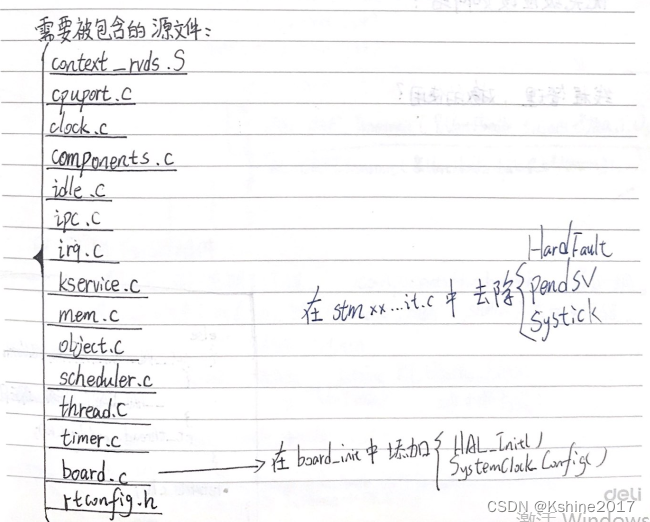 需要被包含的源文件:
context_rvds.S
cpuport.c
clock.c
components.c
idle.c
ipc.c
irq.c
kservice.c
mem.c
object.c
scheduler.c
thread.c
timer.c
board.c
rtconfig.h
在 stm xx...it.c 中 去除
HardFault
PendSV
Systick
在 board_init 中 添加
HAL_Init()
SystemClock_Config()
deli
CSDN @Kshine2017
激活 Windows